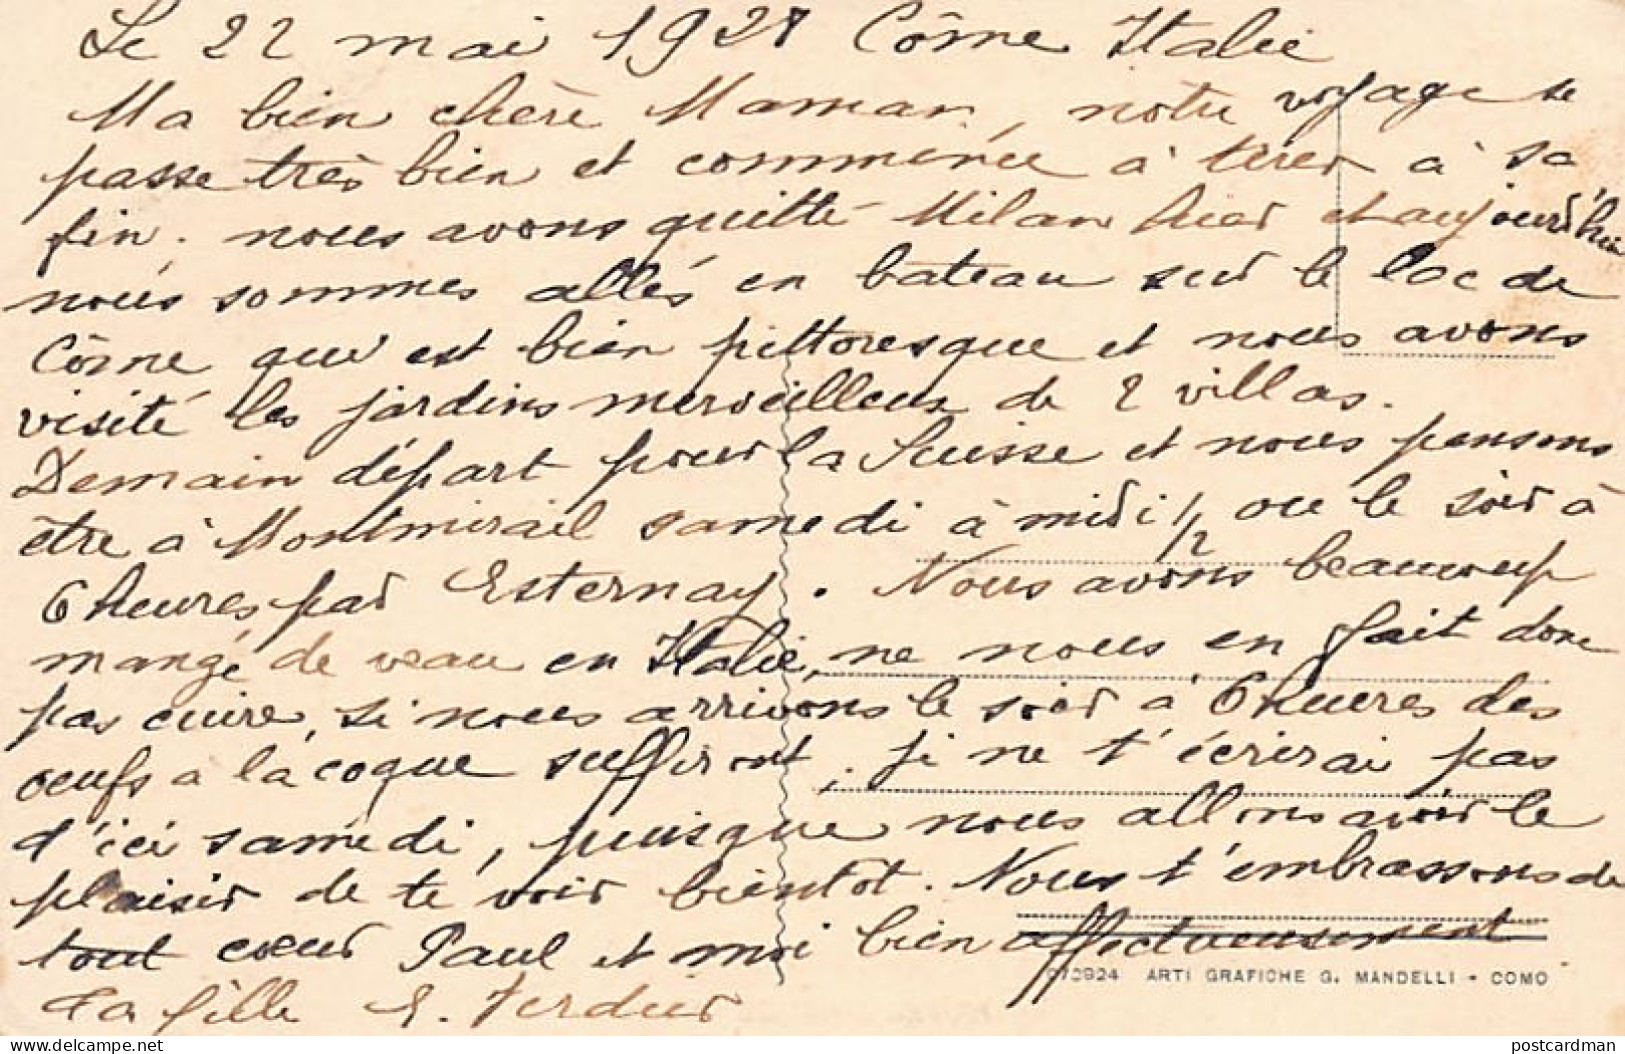 Le 22 mai 1928 Côme Italie
Ma bien chère Maman, notre voyage se
passe très bien et commence à tirer à sa
fin. nous avons quitté Milan hier et aujourd'hui
nous sommes allés en bateau sur le lac de
Côme qui est bien pittoresque et nous avons
visité les jardins merveilleux de 2 villas.
Demain départ pour la Suisse et nous pensons
être à Montmirail samedi à midi 1/2 ou le soir à
6 heures par Esternay. Nous avons beaucoup
mangé de veau en Italie, ne nous en fait donc
pas cuire, si nous arrivons le soir à 6 heures des
oeufs a la coque suffiront, je ne t'écrirai pas
d'ici samedi, puisque nous allons avoir le
plaisir de te voir bientôt. Nous t'embrassons de
tout coeur Paul et moi bien affectueusement
Ta fille E. Verdier
972924 ARTI GRAFICHE G. MANDELLI - COMO
www.delcampe.net
postcardman